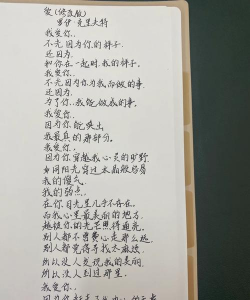 爱(修改版)
罗伊·克里夫特
我爱你,
不光因为你的样子,
还因为,
和你在一起时,我的样子。
我爱你,
不光因为你为我而做的事,
还因为,
为了你,我能做成的事。
我爱你,
因为你能唤出,
我最真的那部分。
我爱你,
因为你穿越我心灵的旷野
如同阳光穿过水晶般容易
我的傻气,
我的弱点,
在你目光里几乎不存在。
而我心里最美丽的地方,
却被你的光芒照得通亮。
别人都不曾费心走那么远,
别人都觉得寻找太麻烦,
所以没人发现我的美丽,
所以没人到过那里。
我爱你,